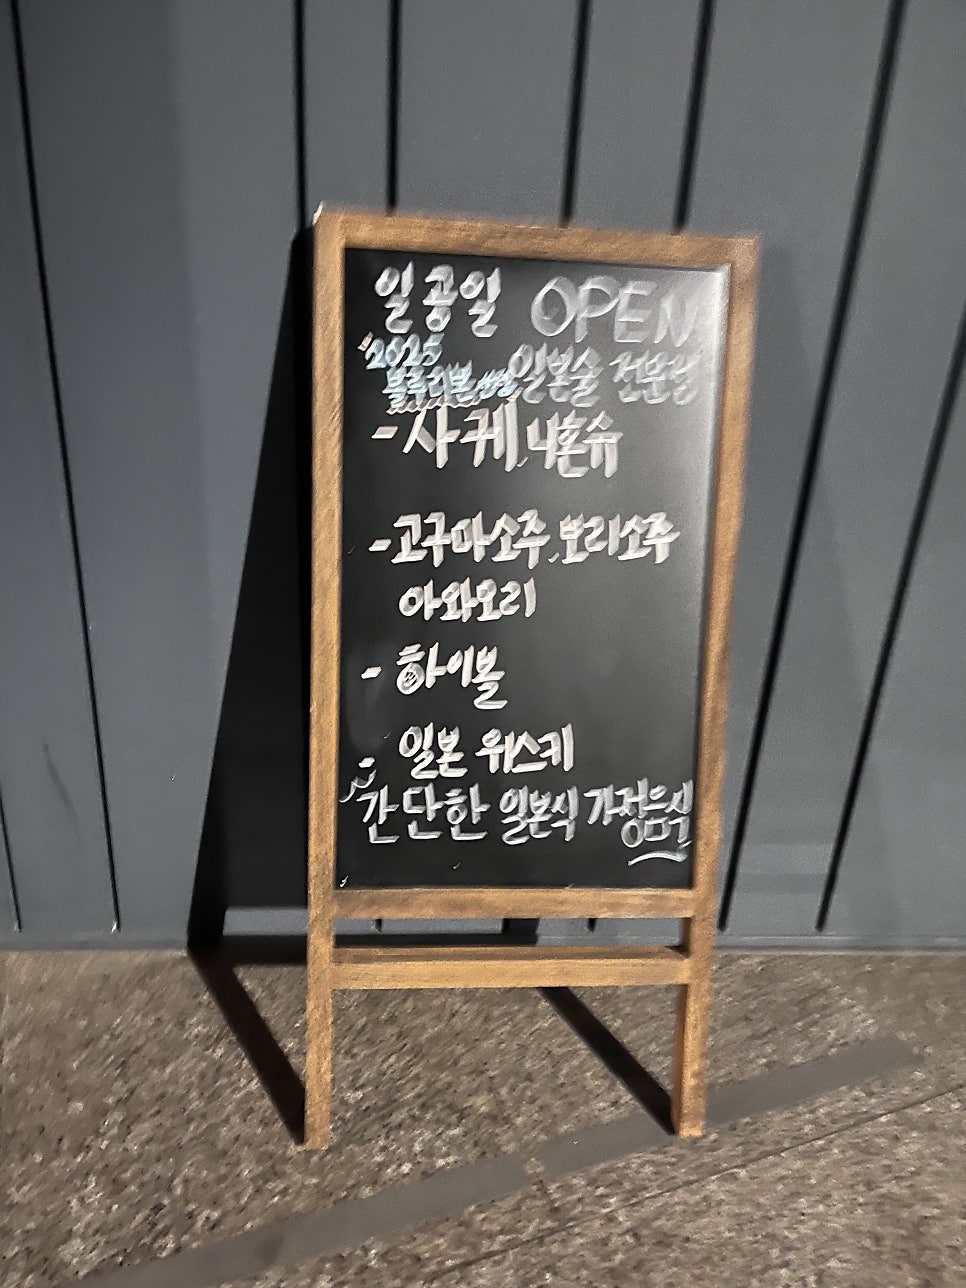 일공일 OPEN
2025
블루리본 선정 일본술 전문점
- 사케, 니혼슈
- 고구마소주, 보리소주
아와모리
- 하이볼
- 일본 위스키
간단한 일본식 가정음식